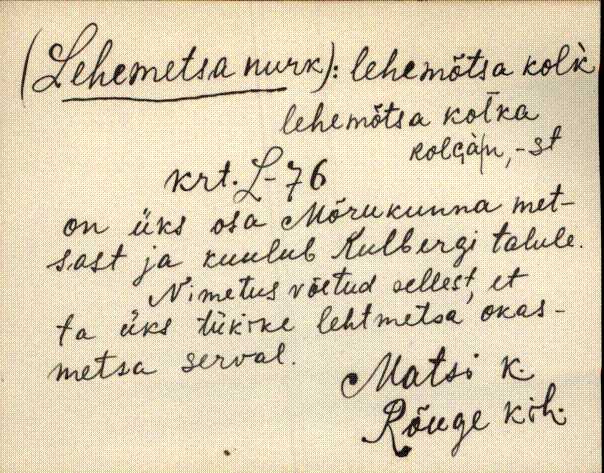 (Lehemetsa nurk): lehemõtsa kolk̀
lehemõtsa kolka
kolgàn, -st
krt. L-76
on üks osa Mõrukunna met-
sast ja kuulub Kulbergi talule.
Nimetus võetud sellest, et
ta üks tükike lehtmetsa okas-
metsa serval.
Matsi k.
Rõuge kih.